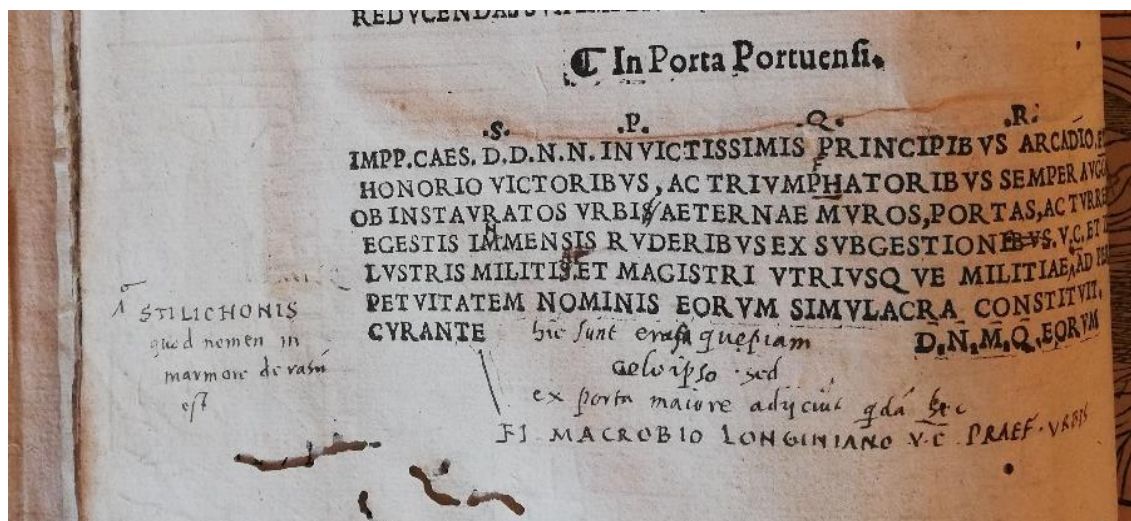 REDVCENDAS
₵ In Porta Portuensi.
.S. .P. .Q. .R.
IMPP.CAES. D.D.N.N. INVICTISSIMIS PRINCIPIBVS ARCADIO.E
HONORIO VICTORIBVS, AC TRIVMPHATORIBVS SEMPER AVGG
OB INSTAVRATOS VRBIS AETERNAE MVROS, PORTAS, AC TVRRE
EGESTIS IMMENSIS RVDERIBVS EX SVBGESTIONIBVS. V.C. ET I
LVSTRIS MILITIS ET MAGISTRI VTRIVSQVE MILITIAE AD PER
PETVITATEM NOMINIS EORVM SIMVLACRA CONSTITVIT.
CVRANTE D.N.M.Q. EORVM
hic sunt erasa quepiam
celo ipso . sed
ex porta maiore adijciũt qdã hec
Fl. MACROBIO LONGINIANO V.C. PRAEF. VRBIS
STILICHONIS
quod nomen in
marmore derasũ
est